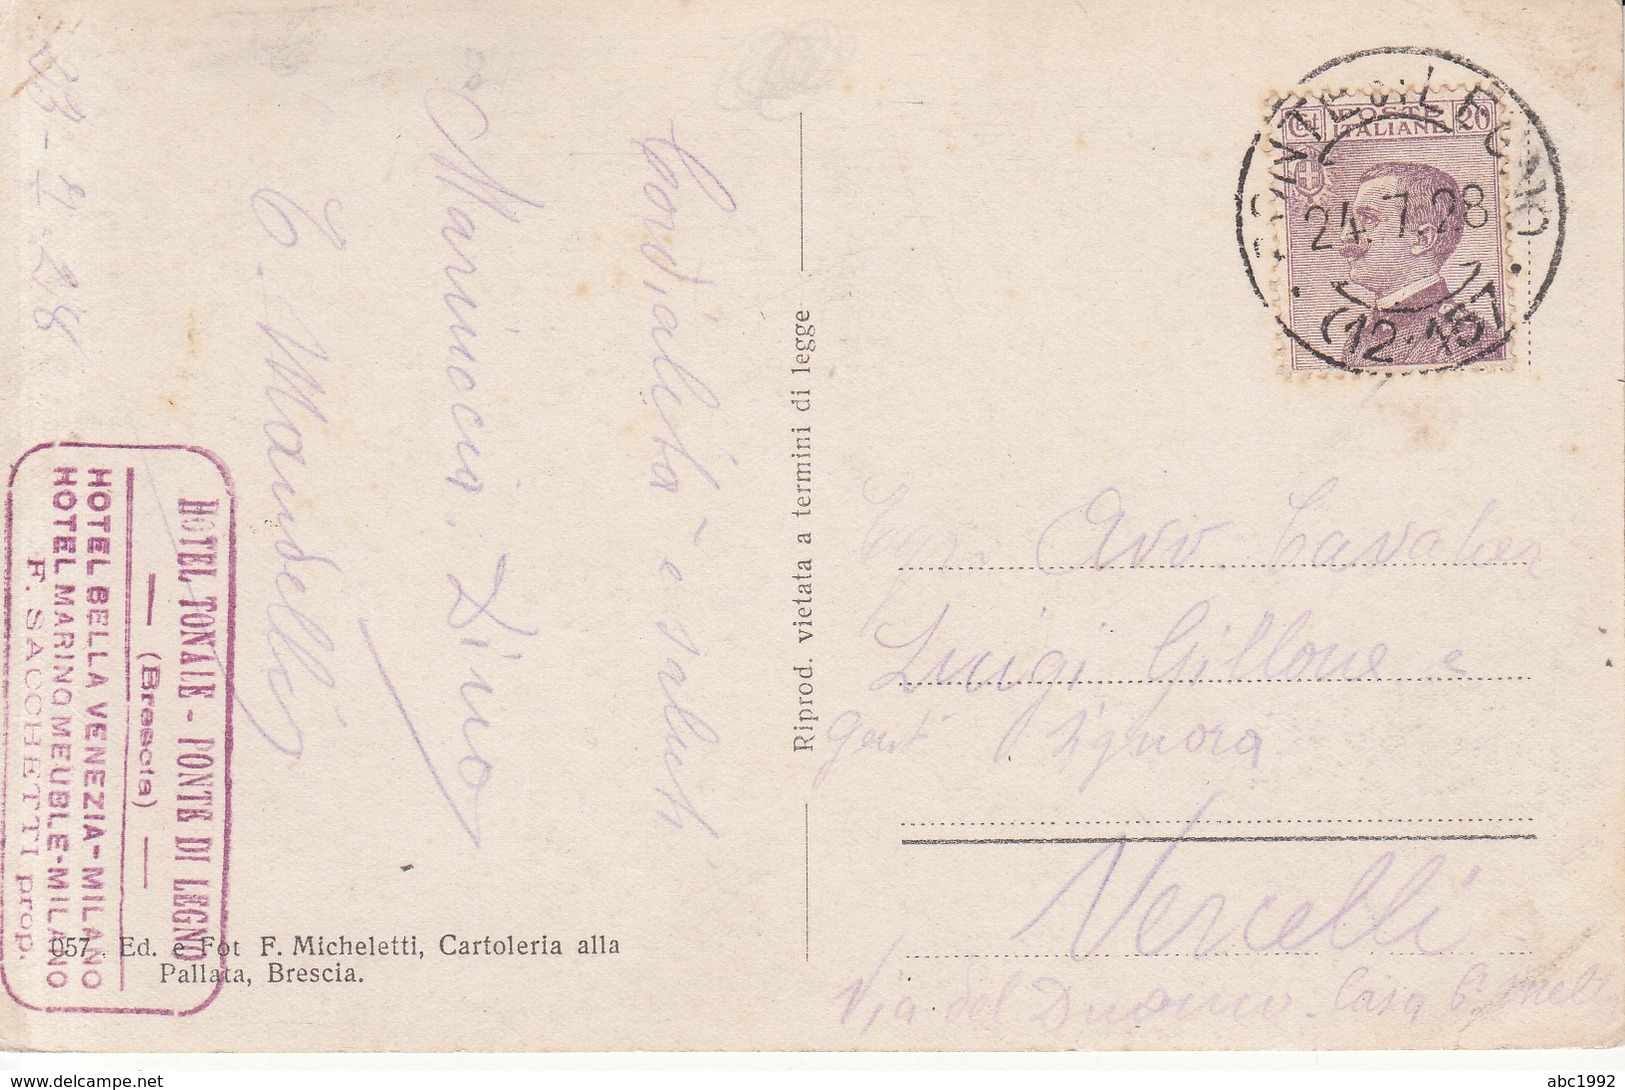 23-7-28
Cordialità e saluti
Mariuccia. Dino
C. Mandelli
HOTEL TONALE - PONTE DI LEGNO
(Brescia)
HOTEL BELLA VENEZIA-MILANO
HOTEL MARINO MEUBLE-MILANO
F. SACCHETTI prop.
057. Ed. e Fot F. Micheletti, Cartoleria alla
Pallata, Brescia.
Riprod. vietata a termini di legge
Cent POSTE 20
ITALIANE
PONTE DI LEGNO
24.7.28
Avv. Cavalier
Luigi Gillone e
gent Signora
Vercelli
Via del Duomo. Casa
abc1992